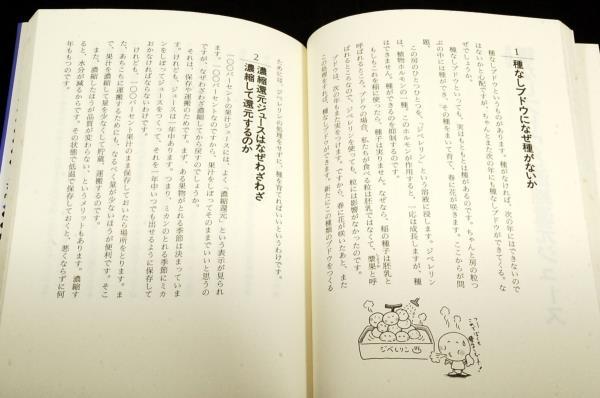 1 種なしブドウになぜ種がないか
種なしブドウというものがあります。種がなければ、次の年にはできないので
はないかと心配ですが、ちゃんとまた次の年にも種なしブドウができてくる。な
ぜでしょうか。
種なしブドウといっても、実はもともとは種があるのです。ちゃんと房の粒つ
ぶの中には種ができ、その種をまいて育て、春に花が咲きます。ここからが問
題。
この房のひとつひとつを、"ジベレリン"という溶液に浸します。ジベレリン
は、植物ホルモンの一種。このホルモンが作用すると、一応は成長しますが、種
はできません。種ができるのを抑制するのです。
もしもこれを稲に使ったら、種子は実りません。なぜなら、稲の種子は胚乳と
呼ばれますが、ブドウの場合、私たちが食べる粒は胚乳ではなくて、漿果と呼
ばれるところなので、ジベレリンを使っても、粒には影響がなかったのです。
ブドウは、次の年もまた実をつけます。ですから、春に花が咲いたあと、また
この処理をすれば、種なしブドウができます。新たにこの種類のブドウをつくる
ジベレリン
ためには、ジベレリンの処理をせずに、種を育てればいいというわけです。
2 濃縮還元ジュースはなぜわざわざ
濃縮して還元するのか
一〇〇パーセントの果汁ジュースには、よく「濃縮還元」という表示が見られ
ます。一〇〇パーセントなのですから、果汁をしぼってそのままでいいと思うの
ですが、なぜわざわざ濃縮してから戻すのでしょうか。
それは、保存や運搬のためです。まず、ある果物がとれる季節は決まっていま
す。けれども、ジュースは一年中あります。つまり、ミカンのとれる季節にミカ
ンをしぼってジュースをつくって、それを一年中いつでも出せるように保存して
おかなければならないわけです。
けれども、一〇〇パーセントのまま保存しておいたら場所をとります。ま
た、あちこちに運搬するためにも、なるべく量が少ないほうが便利です。そこ
で、果汁を濃縮して量を少なくして貯蔵、運搬するのです。
また、濃縮したほうが品質が変わらない、というメリットもあります。濃縮す
ると、水分が減るからです。その状態で低温で保存しておくと、悪くならずに何
年ももつのです。